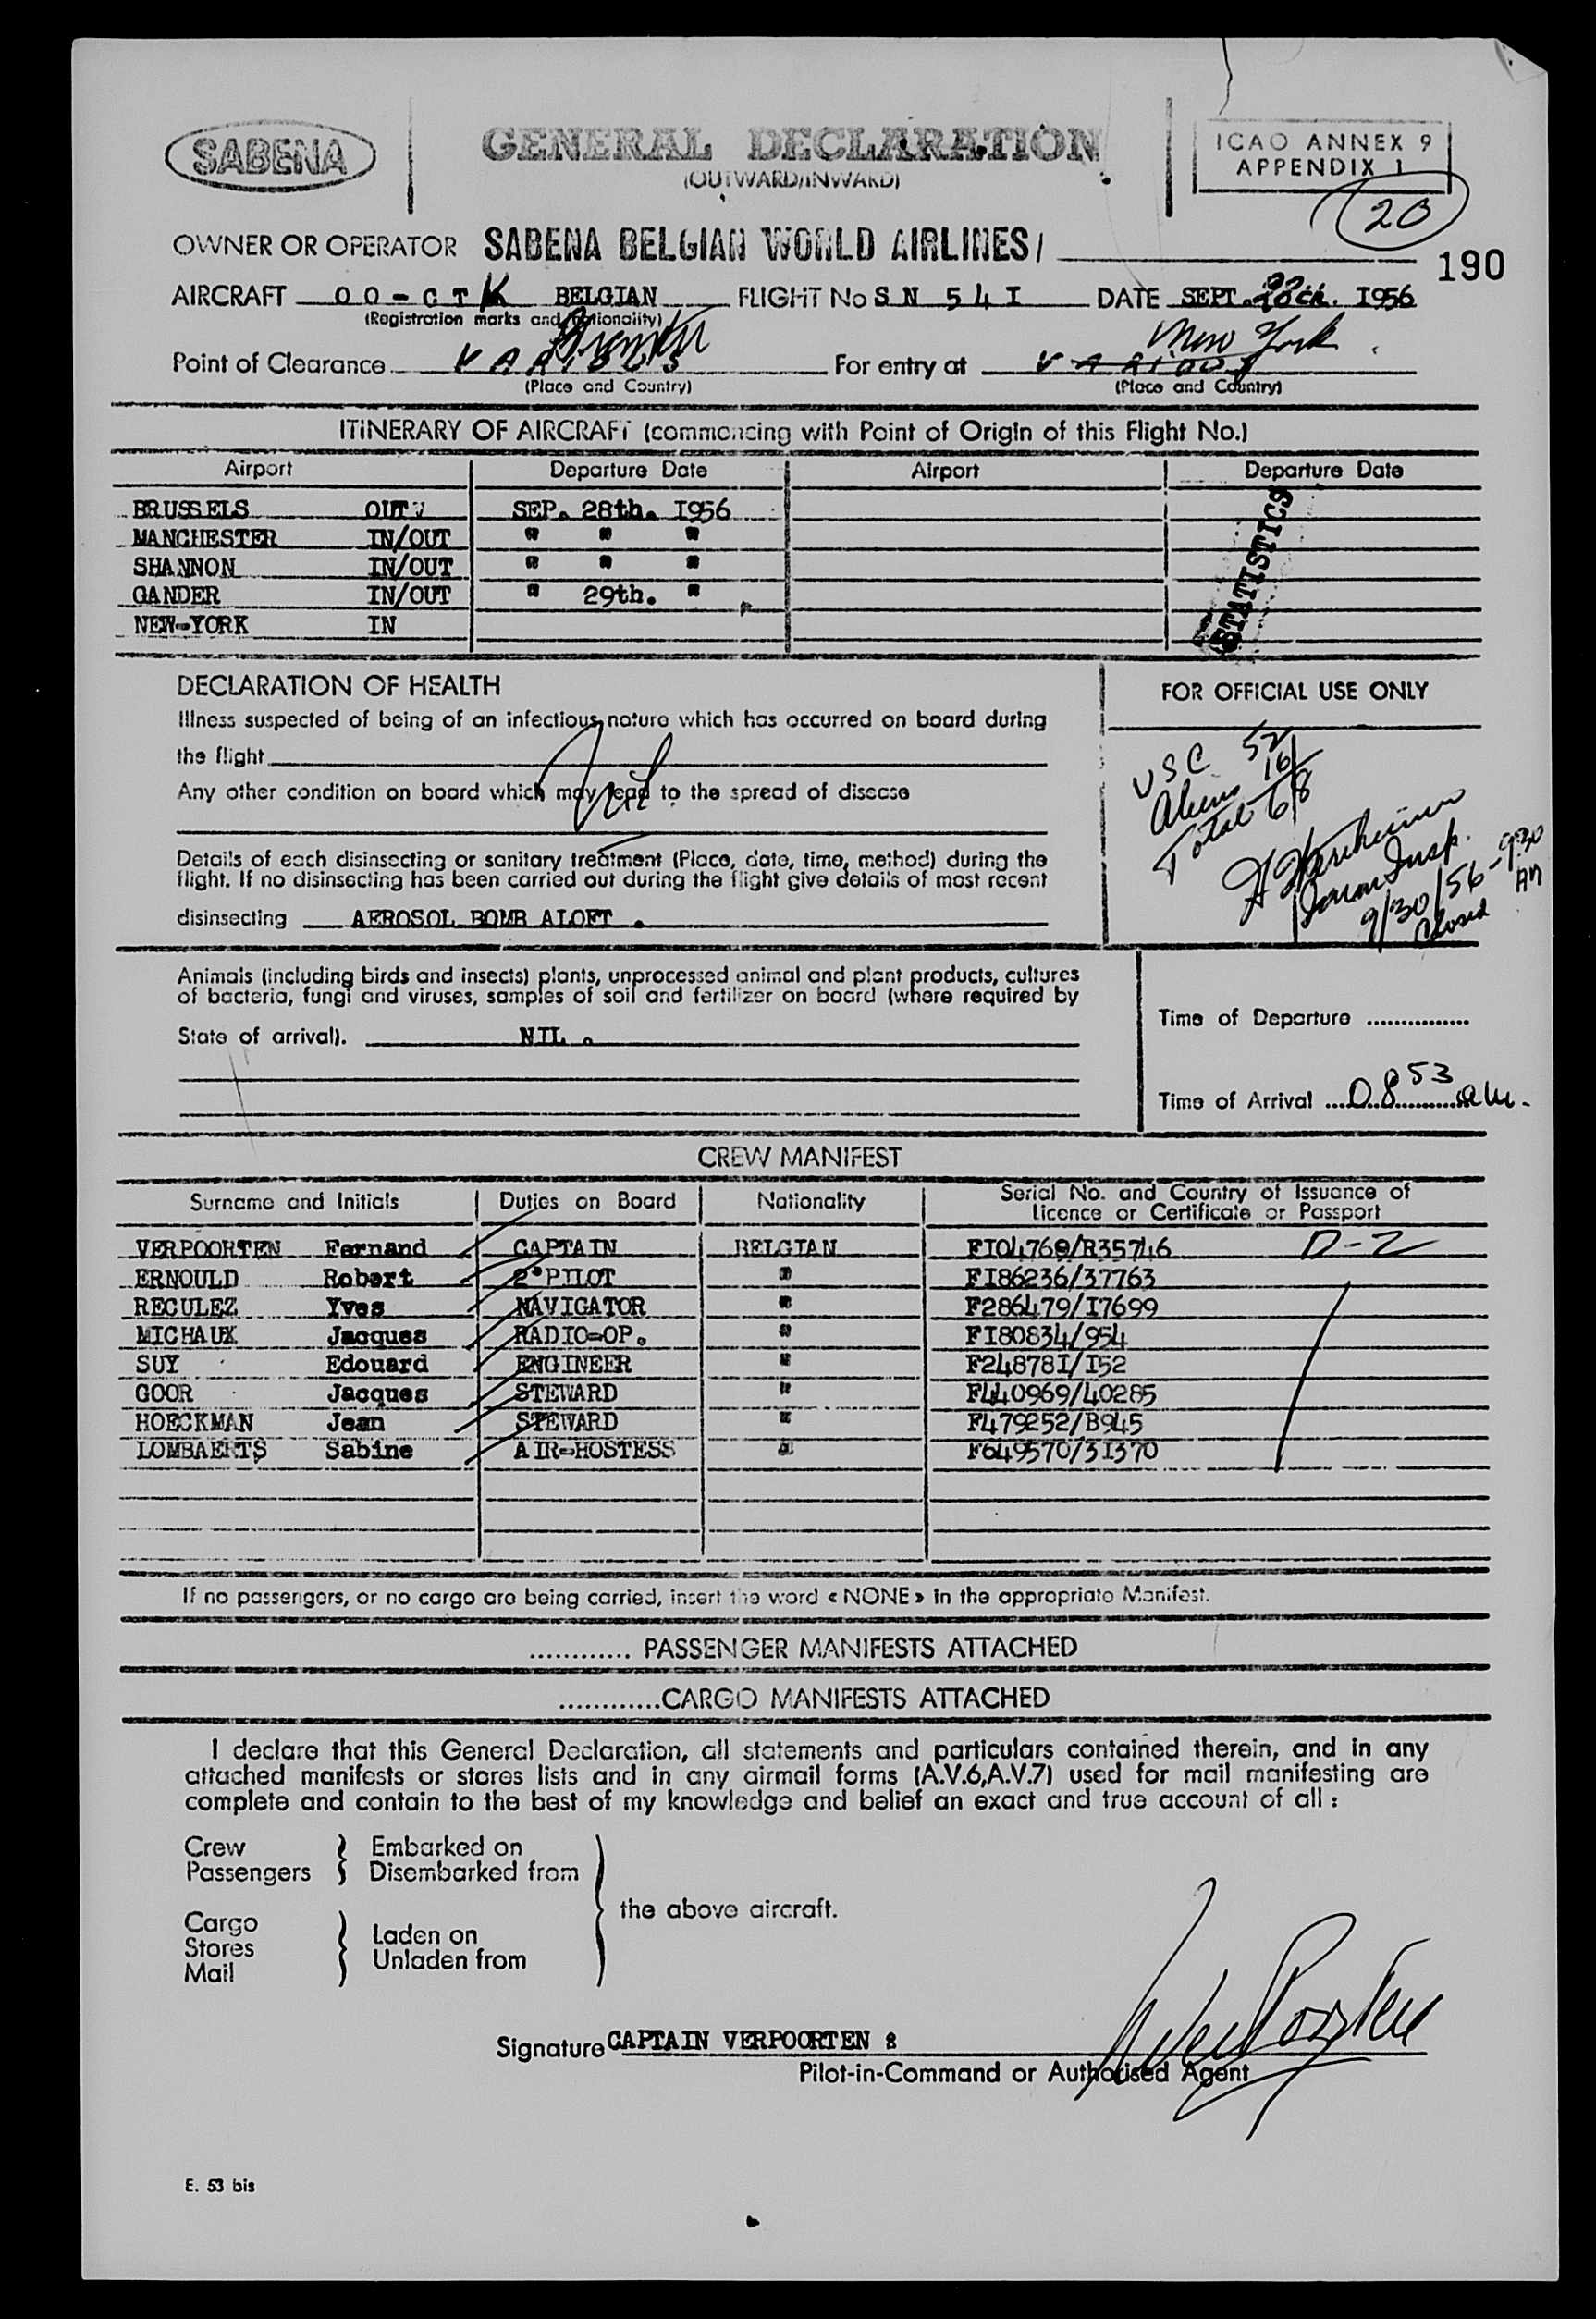 SABENA
GENERAL DECLARATION
(OUTWARD/INWARD)
ICAO ANNEX 9
APPENDIX 1
20
190
OWNER OR OPERATOR SABENA BELGIAN WORLD AIRLINES/
AIRCRAFT OO-CTK BELGIAN FLIGHT No SN 54I DATE SEPT. I956
(Registration marks and nationality)
Point of Clearance VARIOUS For entry at VARIOUS New York
(Place and Country) (Place and Country)
ITINERARY OF AIRCRAFT (commencing with Point of Origin of this Flight No.)
Airport Departure Date Airport Departure Date
BRUSSELS OUT SEP. 28th. I956
MANCHESTER IN/OUT " " "
SHANNON IN/OUT " " "
GANDER IN/OUT " 29th. "
NEW-YORK IN
STATISTICS
DECLARATION OF HEALTH
Illness suspected of being of an infectious nature which has occurred on board during
the flight
Nil
Any other condition on board which may lead to the spread of disease
Details of each disinsecting or sanitary treatment (Place, date, time, method) during the
flight. If no disinsecting has been carried out during the flight give details of most recent
disinsecting AEROSOL BOMB ALOFT .
FOR OFFICIAL USE ONLY
USC 52
Aliens 16
Total 68
Insp.
9/30/56-9:30 AM
Closed
Animals (including birds and insects) plants, unprocessed animal and plant products, cultures
of bacteria, fungi and viruses, samples of soil and fertilizer on board (where required by
State of arrival). NIL .
Time of Departure ................
Time of Arrival 0853 am.
CREW MANIFEST
Surname and Initials Duties on Board Nationality Serial No. and Country of Issuance of
licence or Certificate or Passport
VERPOORTEN Fernand CAPTAIN BELGIAN FI04769/R35746 D-2
ERNOULD Robert 2°PILOT " FI86236/37763
RECULEZ Yves NAVIGATOR " F286479/I7699
MICHAUX Jacques RADIO-OP. " FI80834/954
SUY Edouard ENGINEER " F24878I/I52
GOOR Jacques STEWARD " F440969/40285
HOECKMAN Jean STEWARD " F479252/B945
LOMBAERTS Sabine AIR-HOSTESS " F649570/3I370
If no passengers, or no cargo are being carried, insert the word « NONE » in the appropriate Manifest.
............ PASSENGER MANIFESTS ATTACHED
............CARGO MANIFESTS ATTACHED
I declare that this General Declaration, all statements and particulars contained therein, and in any
attached manifests or stores lists and in any airmail forms (A.V.6,A.V.7) used for mail manifesting are
complete and contain to the best of my knowledge and belief an exact and true account of all :
Crew Embarked on
Passengers Disembarked from
the above aircraft.
Cargo
Stores
Mail
Laden on
Unladen from
Signature CAPTAIN VERPOORTEN :
VerPoorten
Pilot-in-Command or Authorised Agent
E. 53 bis